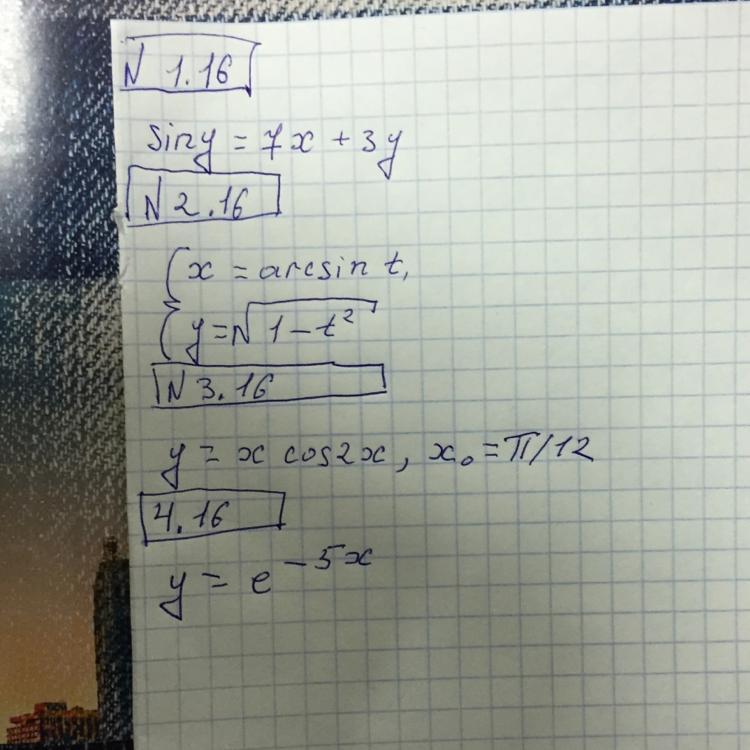 N 1.16
sin y = 7x + 3y
N 2.16
{ x = arcsin t,
y = √1 - t²
N 3.16
y = x cos2x, x₀ = π/12
4.16
y = e^-5x